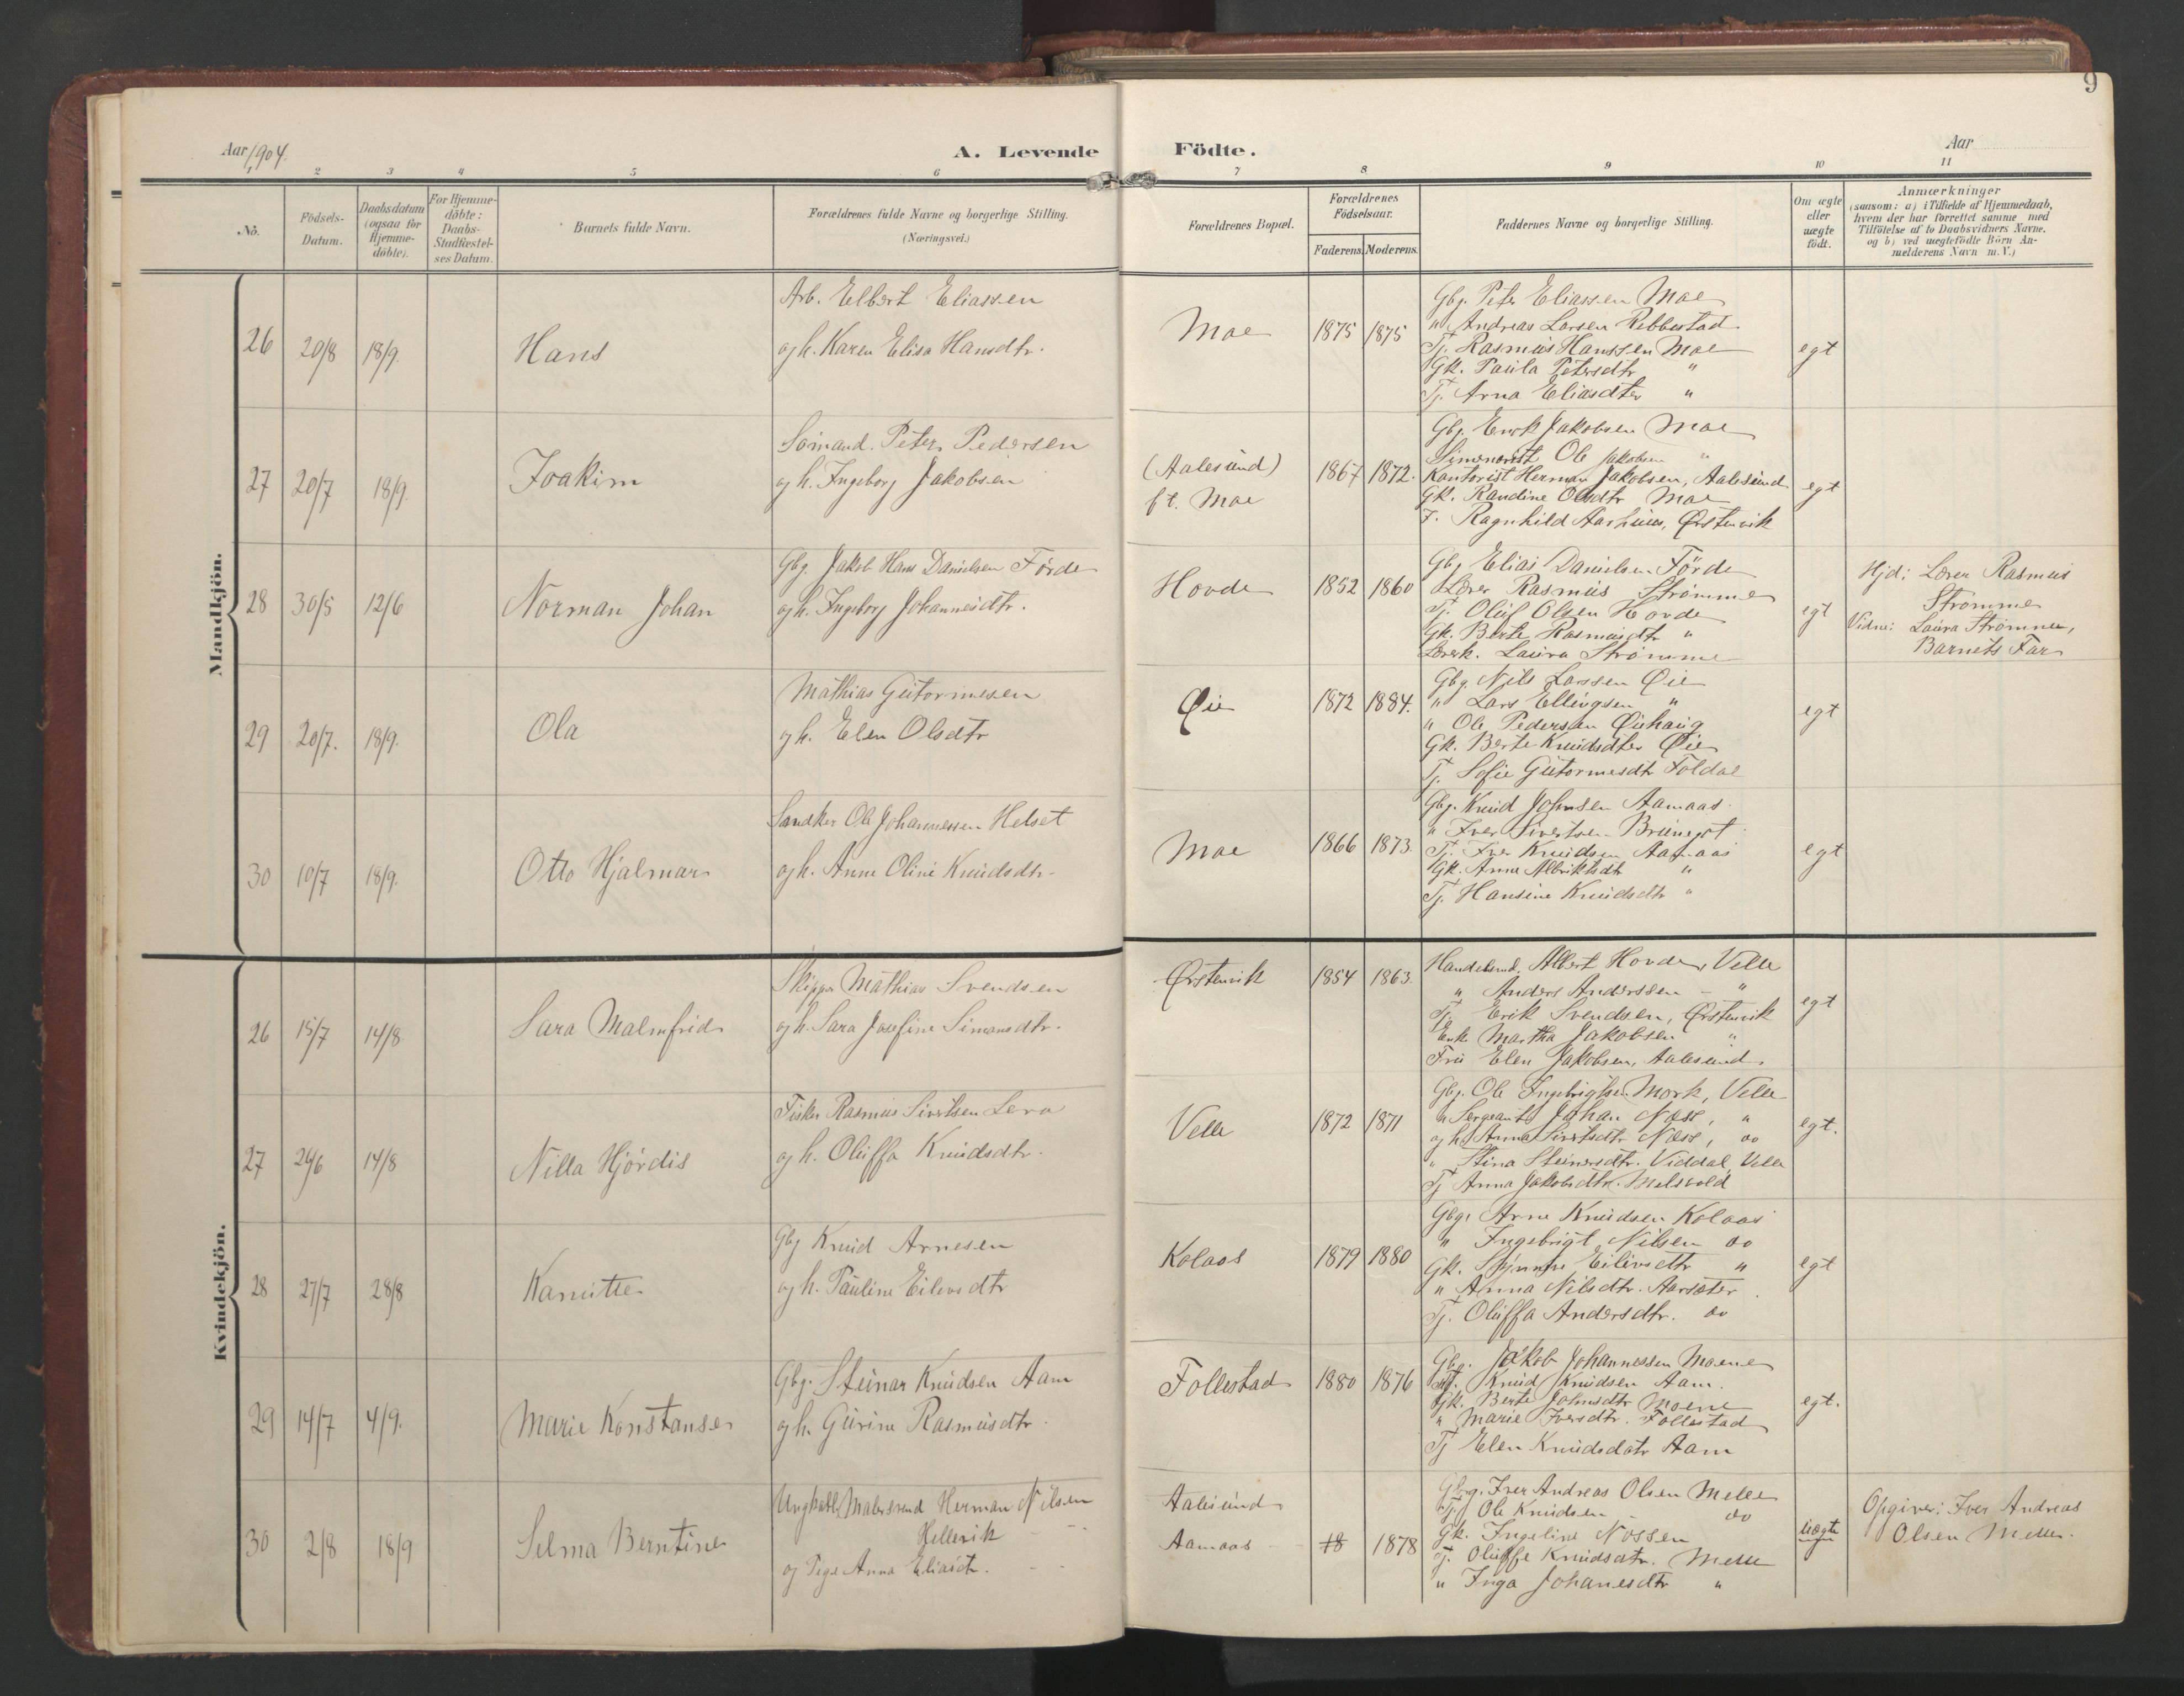 9
Aar 1904.
A. Levende Födte.
Aar
1 2 3 4 5 6 7 8 9 10 11
No.
Födsels-Datum.
Daabsdatum (ogsaa for Hjemme-döbte).
For Hjemme-döbte: Daabs-Stadfæstel-ses Datum.
Barnets fulde Navn.
Forældrenes fulde Navne og borgerlige Stilling. (Næringsvei.)
Forældrenes Bopæl.
Forældrenes Födselsaar.
Faderens. Moderens.
Faddernes Navne og borgerlige Stilling.
Om ægte eller uægte födt.
Anmærkninger
(saasom: a) i Tilfælde af Hjemmedaab,
hvem der har forrettet samme med
Tilföielse af to Daabsvidners Navne.
og b) ved uægtefödte Börn An-
melderens Navn m. V.)
Mandkjön.
26 20/8 18/9. Hans
Arb. Elbert Eliassen
og h. Karen Elisa Hansdtr.
Moe 1875 1875
Gbg. Peter Eliassen Moe
" Andreas Larsen Rebbestad
Tj. Rasmus Hanssen Moe
Gk. Paula Petersdtr "
Tj. Arna Eliasdter "
egt
27 20/7 18/9. Joakim
Sömand. Peter Pedersen
og h. Ingeborg Jakobsen
(Aalesund)
ft. Moe
1867 1872.
Gbg. Erik Jakobsen Moe
Ole Jakobsen "
Kontorist Herman Jakobsen, Aalesund
Gk. Randine Olsdtr Moe
F. Ragnhild Aarhuus, Ørstenvik
egt
28 30/5 12/6 Norman Johan
Gbg. Jakob Hans Danielsen Förde
og h. Ingeborg Johannesdtr.
Hovde 1852 1860
Gbg Elias Danielsen Förde
Lærer Rasmus Strömme
Tj. Oluf Olsen Hovde
Gk. Berte Rasmusdtr "
Lærerk. Laura Strömme
egt
Hjd: Lærer Rasmus
Strømme
Vidne: Laura Strømme,
Barnets Far
29 20/7. 18/9. Ola
Mathias Gutormesen
og h. Elen Olsdtr
Øie 1872 1884.
Gbg. Nils Larssen Øie
" Lars Ellingsen "
" Ole Pedersen Øiehaug
Gk. Berte Knudsdter Øie
Tj. Sofie Gutormesdtr Foldal
egt
30 10/7 18/9. Otto Hjalmar
Ole Johannessen Helset
og h. Anne Oline Knudsdtr.
Moe 1866 1873.
Gbg. Knud Johnsen Aamaas
" Iver Sivertsen
Tj. Iver Knudsen Aamaas
Gk. Anne Albriktsdtr "
Tj. Hansine Knudsdtr "
egt
Kvindekjön.
26 15/7 14/8 Sara Malmfrid
Skipper Mathias Svendsen
og h. Sara Josefine Simonsdtr.
Ørstenvik 1854 1863.
Handelsmd. Albert Hovde, Velle
" Anders Anderssen - "
Tj. Erik Svendsen, Ørstenvik
Enke Martha Jakobsen "
Fru Elen Jakobsen, Aalesund
egt
27 29/6 14/8 Nilla Hjördis
Fisker Rasmus Sivertsen
og h. Oluffa Knudsdtr.
Velle 1872 1871
Gbg. Ole Ingebrigtsen Mork, Velle
" Sergeant Johan Næss, "
og h. Anna Sivertsdtr Næss, do
" Stina Steinarsdtr. Viddal, Velle
Tj Anna Jakobsdtr. Melsvold
egt.
28 27/7 28/8 Kanutte
Gbg Knud Arnesen
og h. Pauline Eilevsdtr
Kolaas 1879 1880
Gbg. Arne Knudsen Kolaas
" Ingebrigt Nilsen do
Gk. Eilevsdtr "
" Anna Nilsdtr. Aarsæter
Tj. Oluffa Andersdtr. do
egt
29 14/7 4/9. Marie Konstanse
Gbg. Steinar Knudsen Aam
og h. Gurine Rasmusdtr.
Follestad 1880 1876
Gbg. Jakob Johannessen Moene
Tj. Knud Knudsen Aam.
Gk. Berte Johnsdtr Moene
" Marie Iversdtr. Follestad
Tj Elen Knudsdatr Aam
egt.
30 2/8 18/9 Selma Berntine
Ungkarl, Malersvend Herman Nilsen
Hellevik
og Pige Anna Eliasdtr.
Aalesund
Aamaas
18 1878
Gbg. Iver Andreas Olsen Melle
Tj Ole Knudsen do
Gk. Ingeline Nossen
Tj. Oluffe Knudsdtr. Melle
" Inga Johanesdtr "
uægte
Opgiver: Iver Andreas
Olsen Melle.